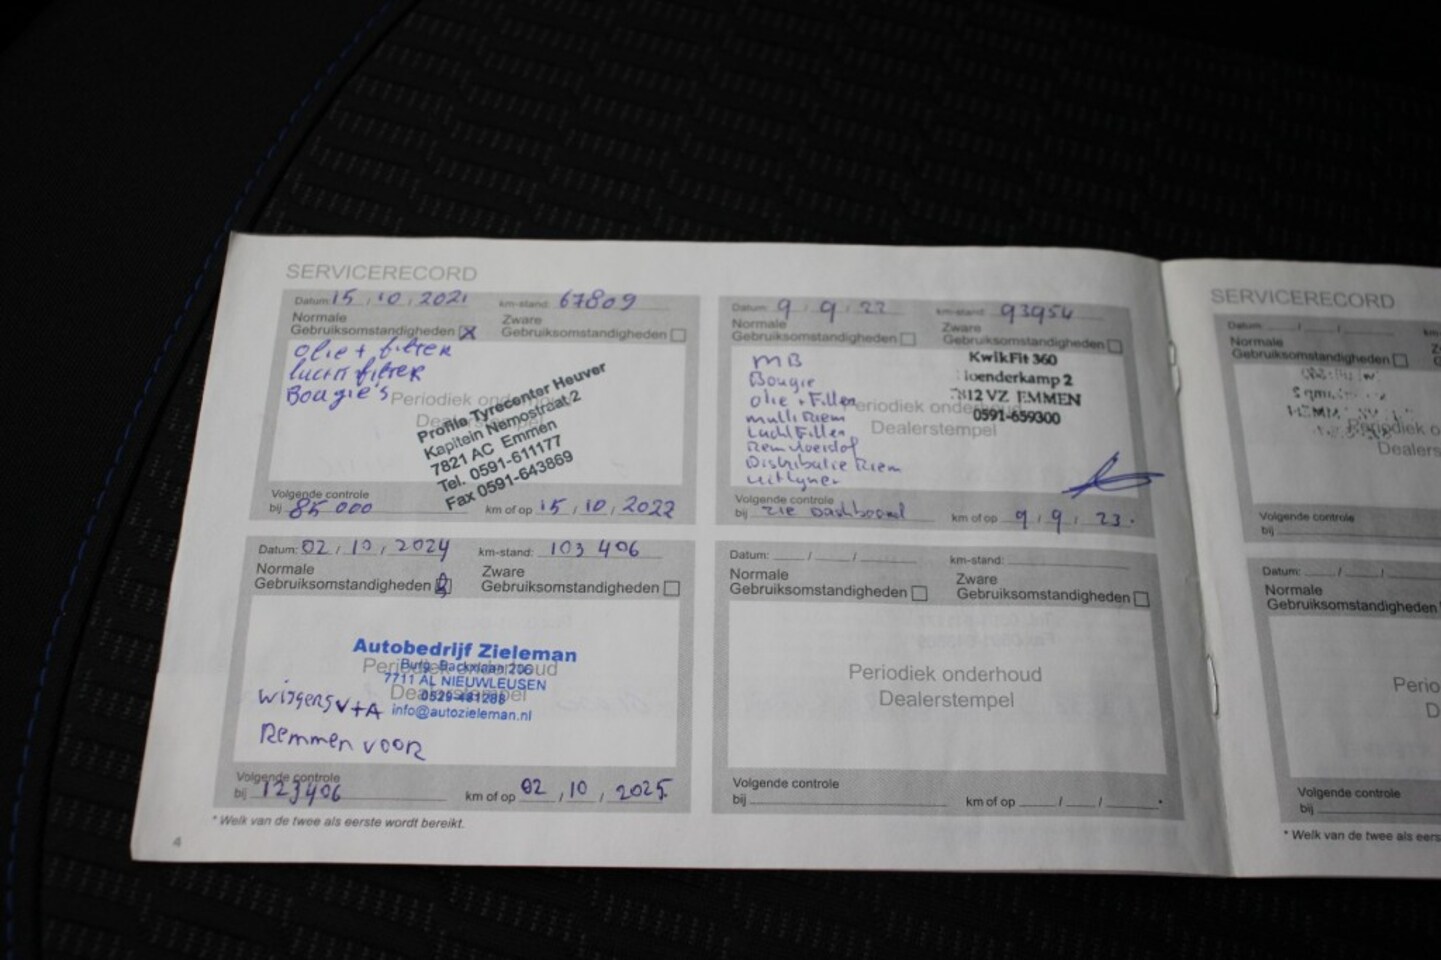 SERVICERECORD
Datum: 15 / 10 / 2021 km-stand: 67809
Normale Gebruiksomstandigheden Zware Gebruiksomstandigheden
olie + filter
lucht filter
Bougie's
Periodiek
Profile Tyrecenter Heuver
Kapitein Nemostraat 2
7821 AC Emmen
Tel. 0591-611177
Fax 0591-643869
Volgende controle
bij 85 000 km of op 15 / 10 / 2022
Datum: 9 / 9 / 22 km-stand: 93954
Normale Gebruiksomstandigheden Zware Gebruiksomstandigheden
MB
Bougie
olie + Filter
multi Riem
Lucht Filter
Remvloeistof
Distributie Riem
uitlynen
KwikFit 360
EMMEN
0591-659300
Periodiek
Dealerstempel
Volgende controle
bij zie Dashboord km of op 9 / 9 / 23.
Datum: 02 / 10 / 2024 km-stand: 103 406
Normale Gebruiksomstandigheden Zware Gebruiksomstandigheden
Autobedrijf Zieleman
7711 AL NIEUWLEUSEN
0529-481288
info@autozieleman.nl
V+A
Remmen voor
Volgende controle
bij 123406 km of op 02 / 10 / 2025
Datum: / / km-stand:
Normale Gebruiksomstandigheden Zware Gebruiksomstandigheden
Periodiek onderhoud
Dealerstempel
Volgende controle
bij km of op / /
* Welk van de twee als eerste wordt bereikt.
4
SERVICERECORD
Datum: / /
Normale
Gebruiksomstandigheden
Periodiek
Volgende controle
bij
Datum: /
Normale
Gebruiksomstandigheden
Volgende controle
bij
* Welk van de twee als